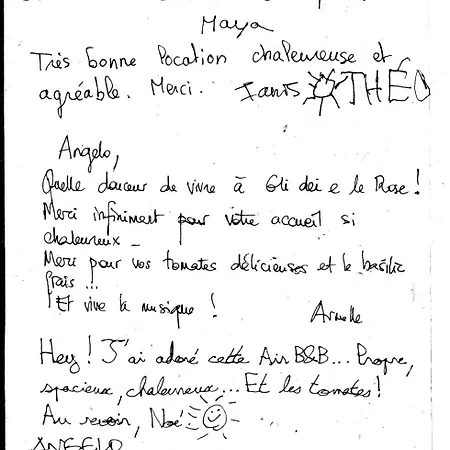 Maya
Très bonne location chaleureuse et
agréable. Merci. THÉO
Angelo,
Quelle douceur de vivre à Gli dei e le Rose !
Merci infiniment pour votre accueil si
chaleureux -
Merci pour vos tomates délicieuses et le basilic
frais ...
Et vive la musique !
Armelle
Hey ! J'ai adoré cette Air B&B... Propre,
spacieux, chaleureux... Et les tomates !
Au revoir, Noé
ANGELO